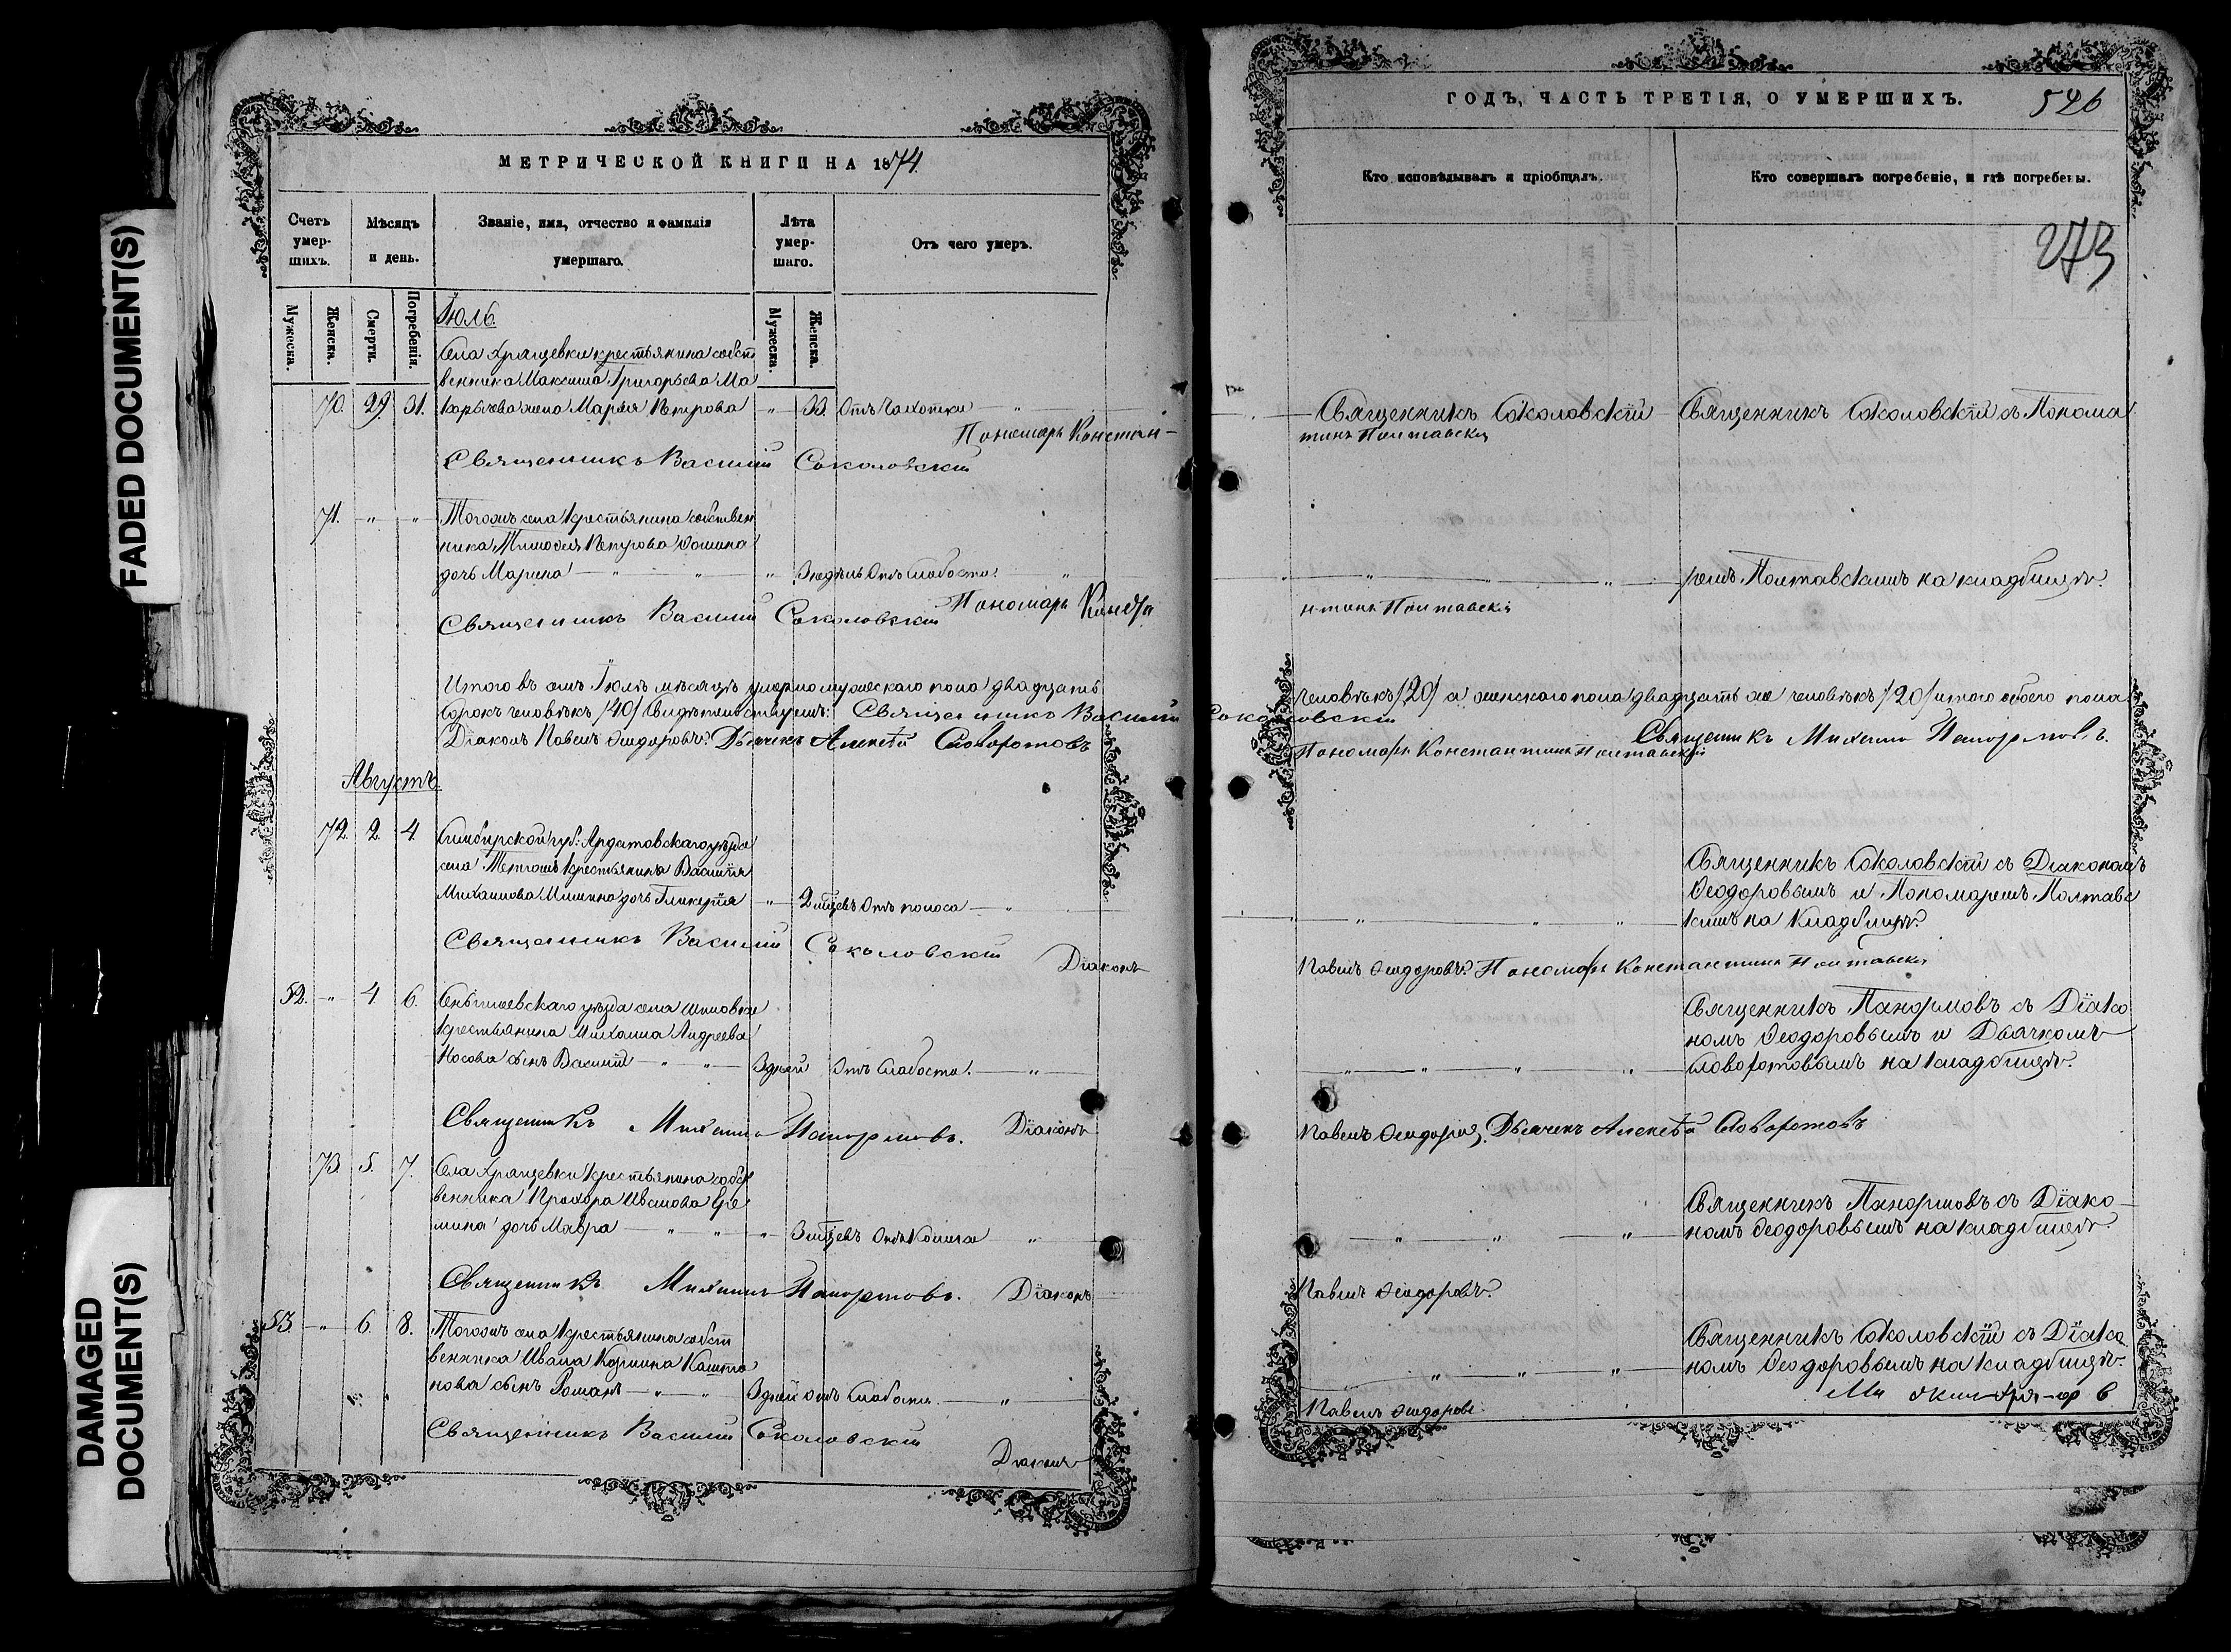 FADED DOCUMENT(S)
DAMAGED
DOCUMENT(S)
МЕТРИЧЕСКОЙ КНИГИ НА 1874.
Счетъ умер-шихъ.
Мѣсяцъ и день.
Званіе, имя, отчество и фамилія умершаго.
Лѣта умер-шаго.
Отъ чего умеръ.
Мужеска.
Женска.
Смерти.
Погребенія.
Мужеска.
Женска.
Іюль.
Села Хрящевки крестьянина собст
венника Максима Григорьева Ма
70. 29. 31. жена Марѳа Петрова " 33. Отъ Чахотки "
Пономарь Констан-
Священникъ Василій Соколовскій
71. " " Тогожъ села Крестьянина собствен
ника Петрова
дочь Марина " " " 3 недѣль Отъ Слабости. "
Священникъ Василій Соколовскій Пономарь Конста
Итого въ Іюлѣ мѣсяцѣ умерло мужескаго пола двадцать
Сорокъ человѣкъ /40/ Свидѣтельствуемъ: Священникъ Василій Соколовскій
Діаконъ Павелъ Ѳеодоровъ. Дьячекъ Алексѣй Словоротовъ
Августъ.
72. 2. 4. Симбирской губ: Ардатовскаго уѣзда
села Крестьянина Василія
Михайлова Мишина дочь Гликерія " 2 мѣсяцевъ Отъ поноса "
Священникъ Василій Соколовскій Діаконъ
52. " 4. 6. уѣзда села
крестьянина Михаила Андреева
Носова сынъ Василій " " 3 дней Отъ Слабости. "
Священникъ Михаилъ Панормовъ. Діаконъ
73. 5. 7. Села Хрящевки Крестьянина собст
венника Прохора Иванова Ере
мина дочь Мавра " " " 3 мѣсяцевъ Отъ "
Священникъ Михаилъ Панормовъ. Діаконъ
53. " 6. 8. Тогожъ села Крестьянина собст
венника Ивана Козмина Кашта
нова сынъ Романъ " " 3 дней отъ Слабости. "
Священникъ Василій Соколовскій
Діаконъ
ГОДЪ, ЧАСТЬ ТРЕТІЯ, О УМЕРШИХЪ. 526
Кто исповѣдывалъ и пріобщалъ.
Кто совершалъ погребеніе, и гдѣ погребены.
273
Священникъ Соколовскій Священникъ Соколовскій съ Понома
тинъ Полтавскій
" " " ремъ Полтавскимъ на кладбищѣ.
нтинъ Полтавскій
человѣкъ /20/ а женскаго пола двадцать же человѣкъ /20/ итого обоего пола
Священникъ Михаилъ Панормовъ.
Пономарь Константинъ Полтавскій
Священникъ Соколовскій съ Діакономъ
Ѳеодоровымъ и Пономаремъ Полтавс
" " " кимъ на Кладбищѣ.
Павелъ Ѳеодоровъ. Пономарь Константинъ Полтавскій
Священникъ Панормовъ съ Діако
номъ Ѳеодоровымъ и Дьячкомъ
" " " " Словоротовымъ на кладбищѣ.
Павелъ Ѳеодоровъ, Дьячекъ Алексѣй Словоротовъ
Священникъ Панормовъ съ Діако-
" " " номъ Ѳеодоровымъ на кладбищѣ.
Павелъ Ѳеодоровъ.
Священникъ Соколовскій съ Діако
" " " номъ Ѳеодоровымъ на кладбищѣ.
Павелъ Ѳеодоровъ